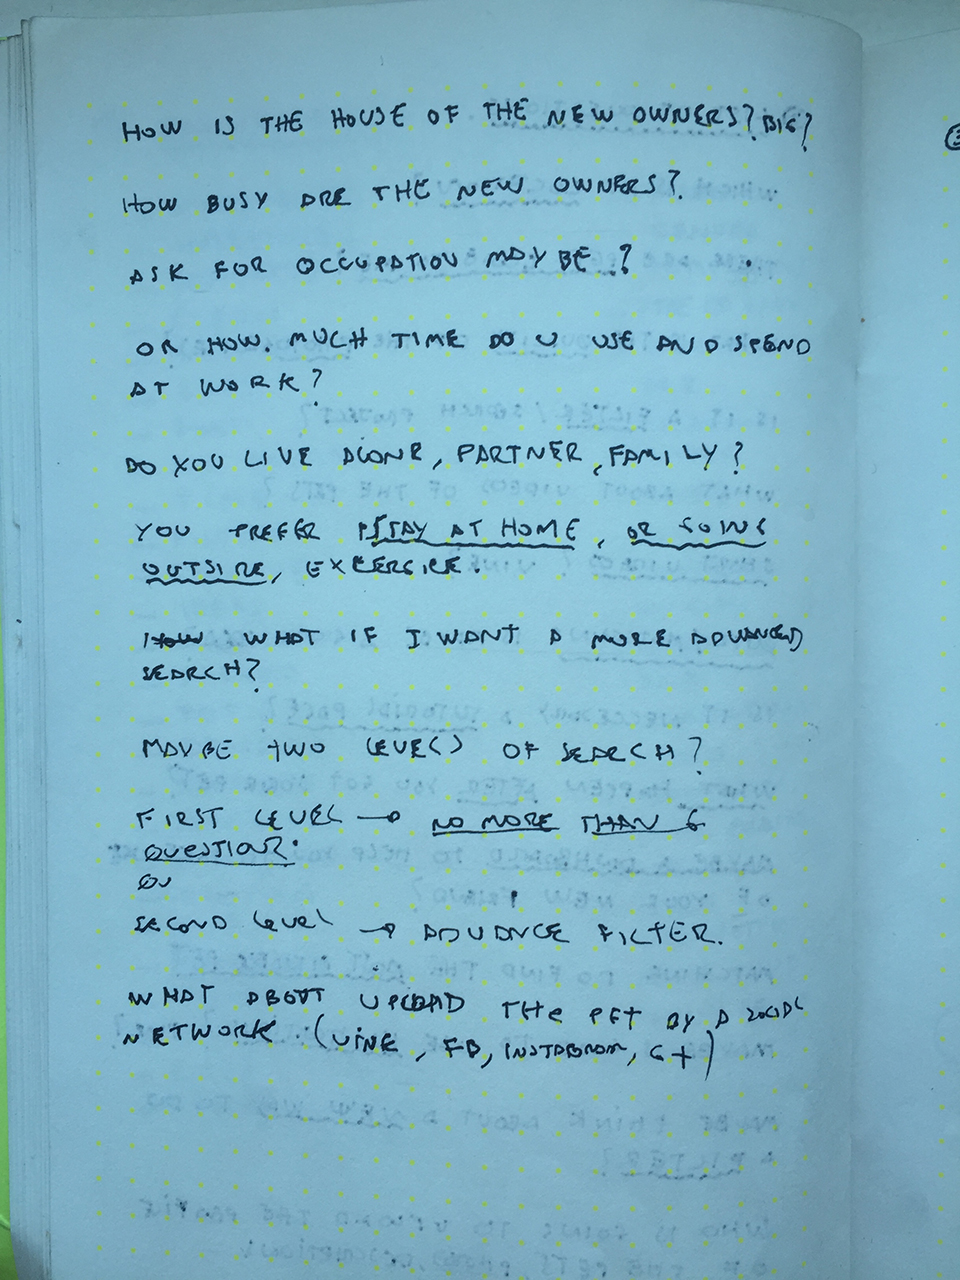 HOW IS THE HOUSE OF THE NEW OWNERS? BIG?
HOW BUSY ARE THE NEW OWNERS?
ASK FOR OCCUPATION MAYBE ..?
OR HOW. MUCH TIME DO U USE AND SPEND
AT WORK?
DO YOU LIVE ALONE, PARTNER, FAMILY?
YOU PREFER STAY AT HOME, OR GOING
OUTSIDE, EXCERCISE.
HOW WHAT IF I WANT A MORE ADVANCED
SEARCH?
MAYBE TWO LEVELS OF SEARCH?
FIRST LEVEL → NO MORE THAN 6
QUESTIONS.
SECOND LEVEL → ADVANCE FILTER.
WHAT ABOUT UPLOAD THE PET BY A SOCIAL
NETWORK (VINE, FB, INSTAGRAM, G+)